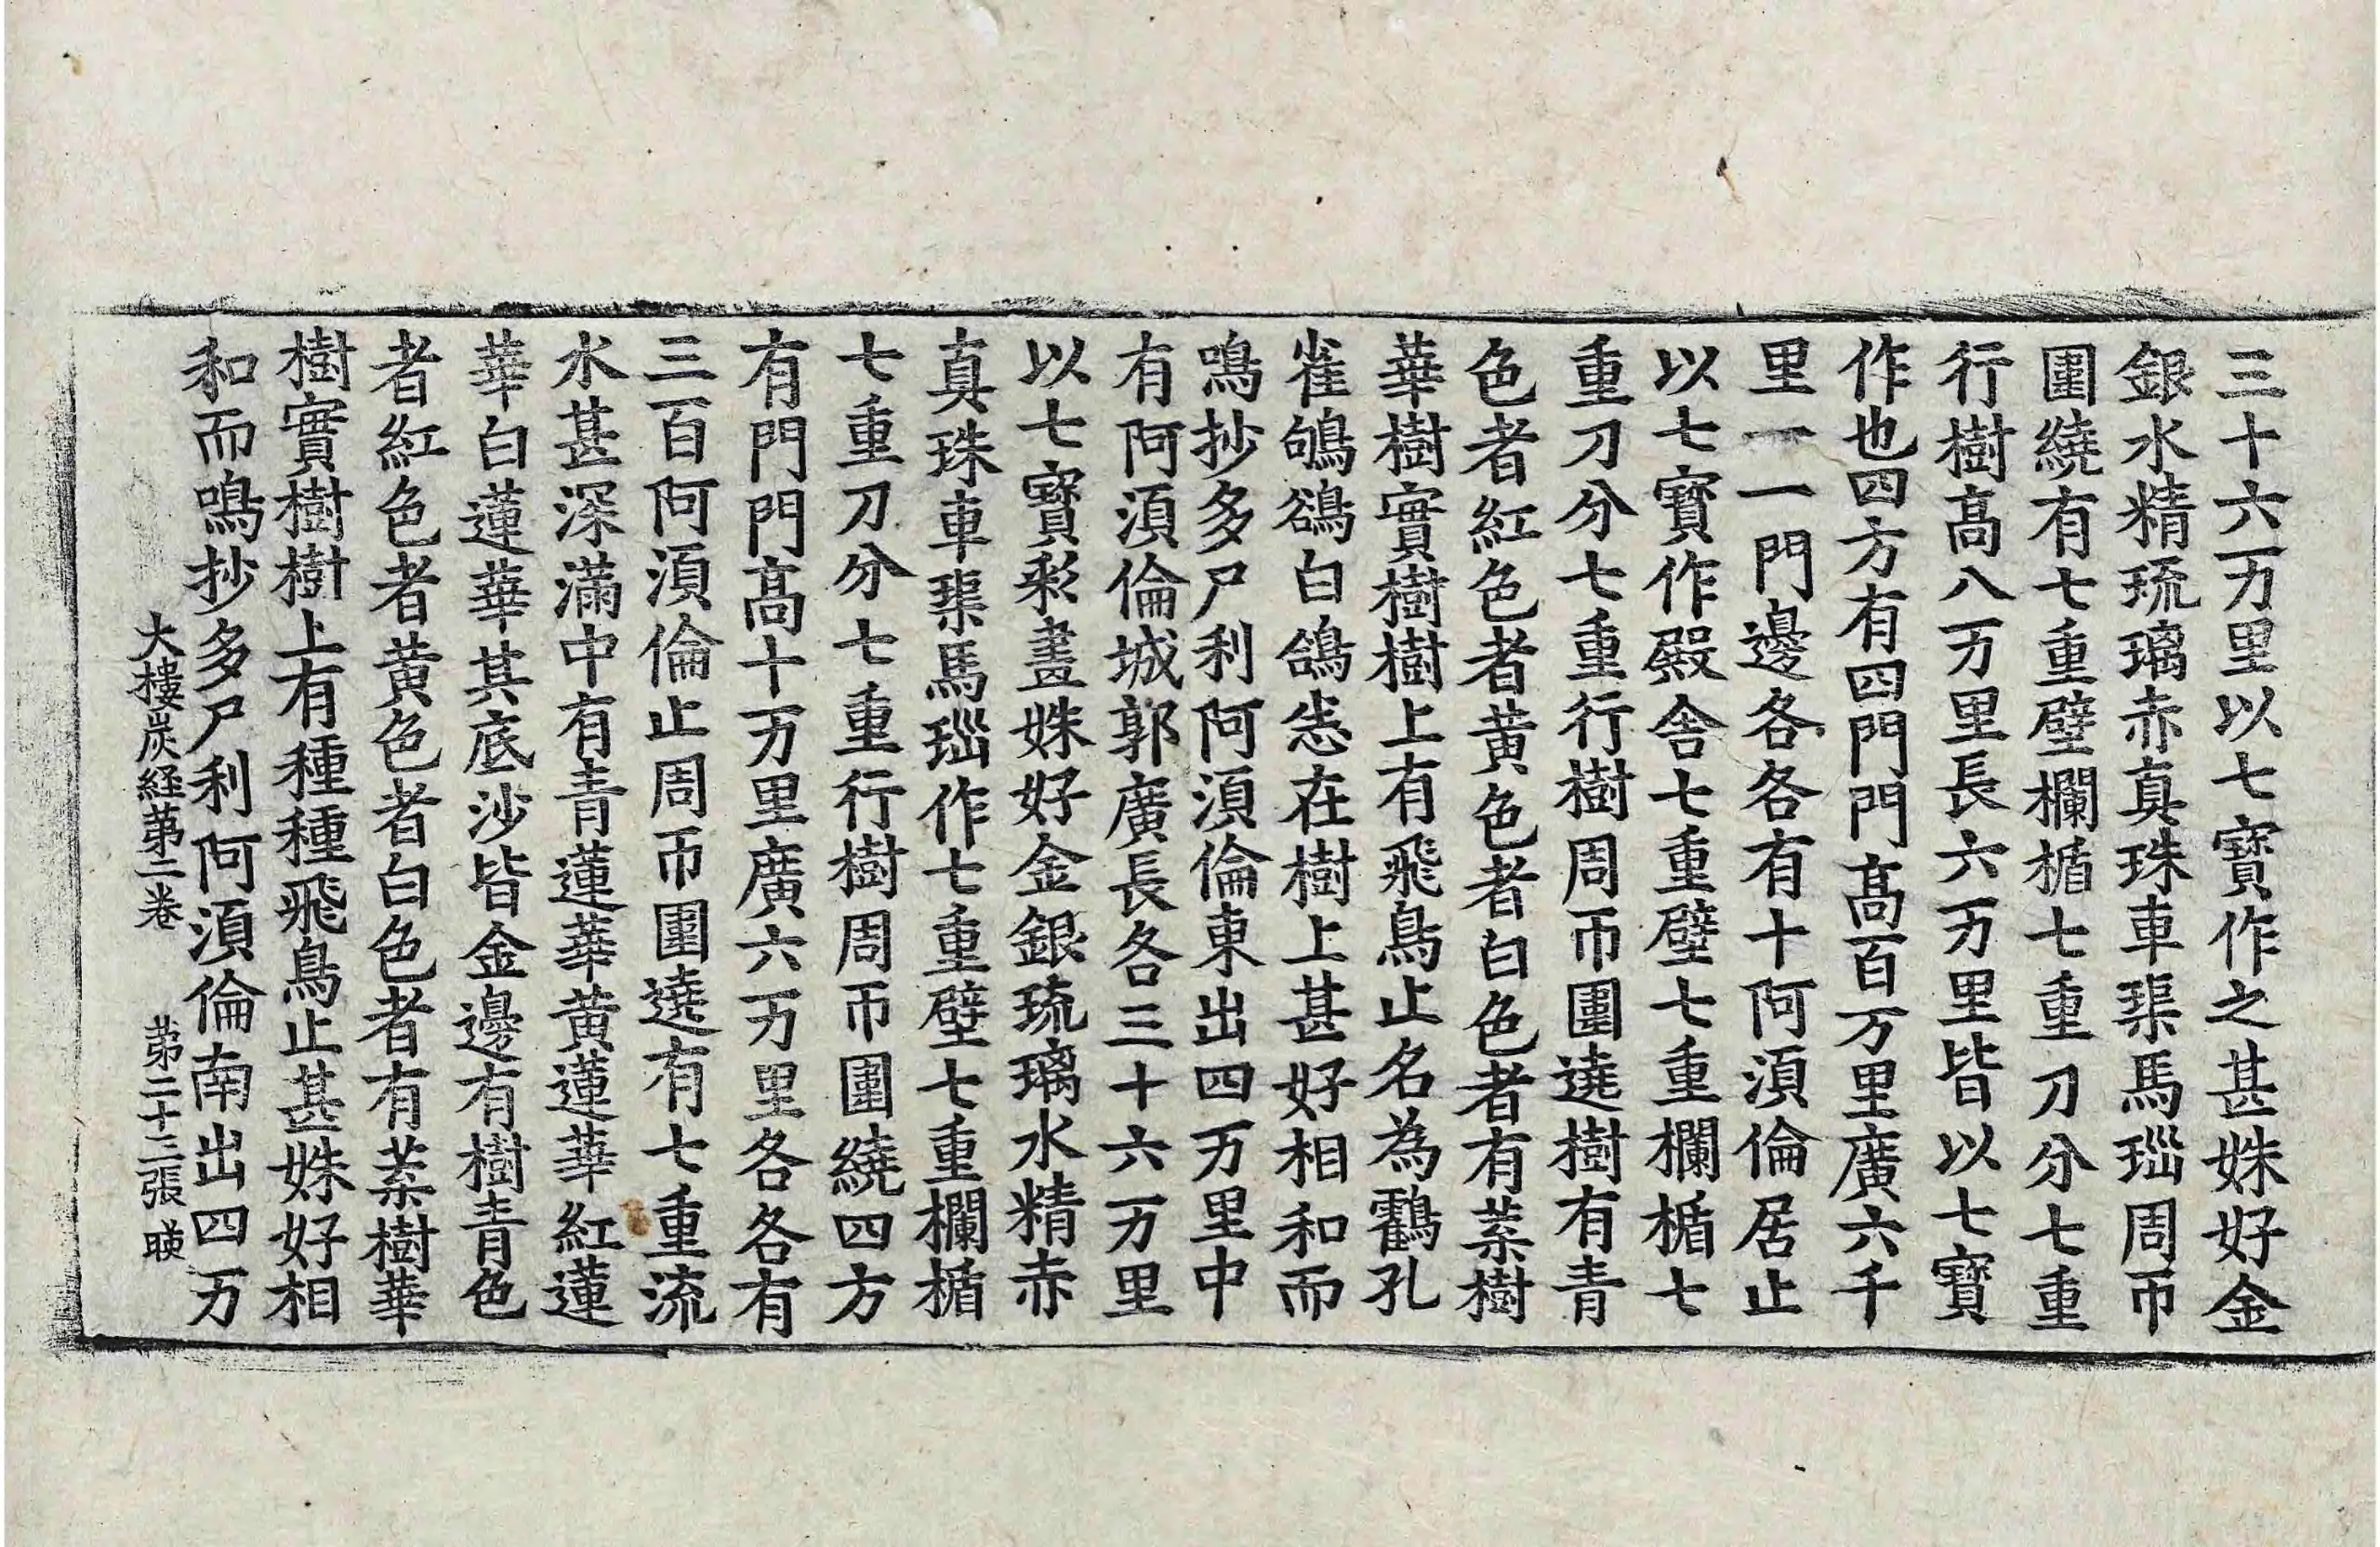 三十六万里以七寶作之甚姝好金
銀水精琉璃赤真珠車璖馬瑙周帀
圍繞有七重壁欄楯七重刀分七重
行樹高八万里長六万里皆以七寶
作也四方有四門門高百万里廣六千
里一一門邊各各有十阿湏倫居止
以七寶作殿舍七重壁七重欄楯七
重刀分七重行樹周帀圍遶樹有青
色者紅色者黄色者白色者有葉樹
華樹實樹樹上有飛鳥止名為鸖孔
雀鴝鵒白鴿恙在樹上甚好相和而
鳴抄多尸利阿湏倫東出四万里中
有阿湏倫城郭廣長各三十六万里
以七寶彩畫姝好金銀琉璃水精赤
真珠車璖馬瑙作七重壁七重欄楯
七重刀分七重行樹周帀圍繞四方
有門門高十万里廣六万里各各有
三百阿湏倫止周帀圍遶有七重流
水甚深滿中有青蓮華黄蓮華紅蓮
華白蓮華其底沙皆金邊有樹青色
者紅色者黄色者白色者有葉樹華
樹實樹樹上有種種飛鳥止甚姝好相
和而鳴抄多尸利阿湏倫南出四万
大樓炭経苐二卷 苐二十三張 暎